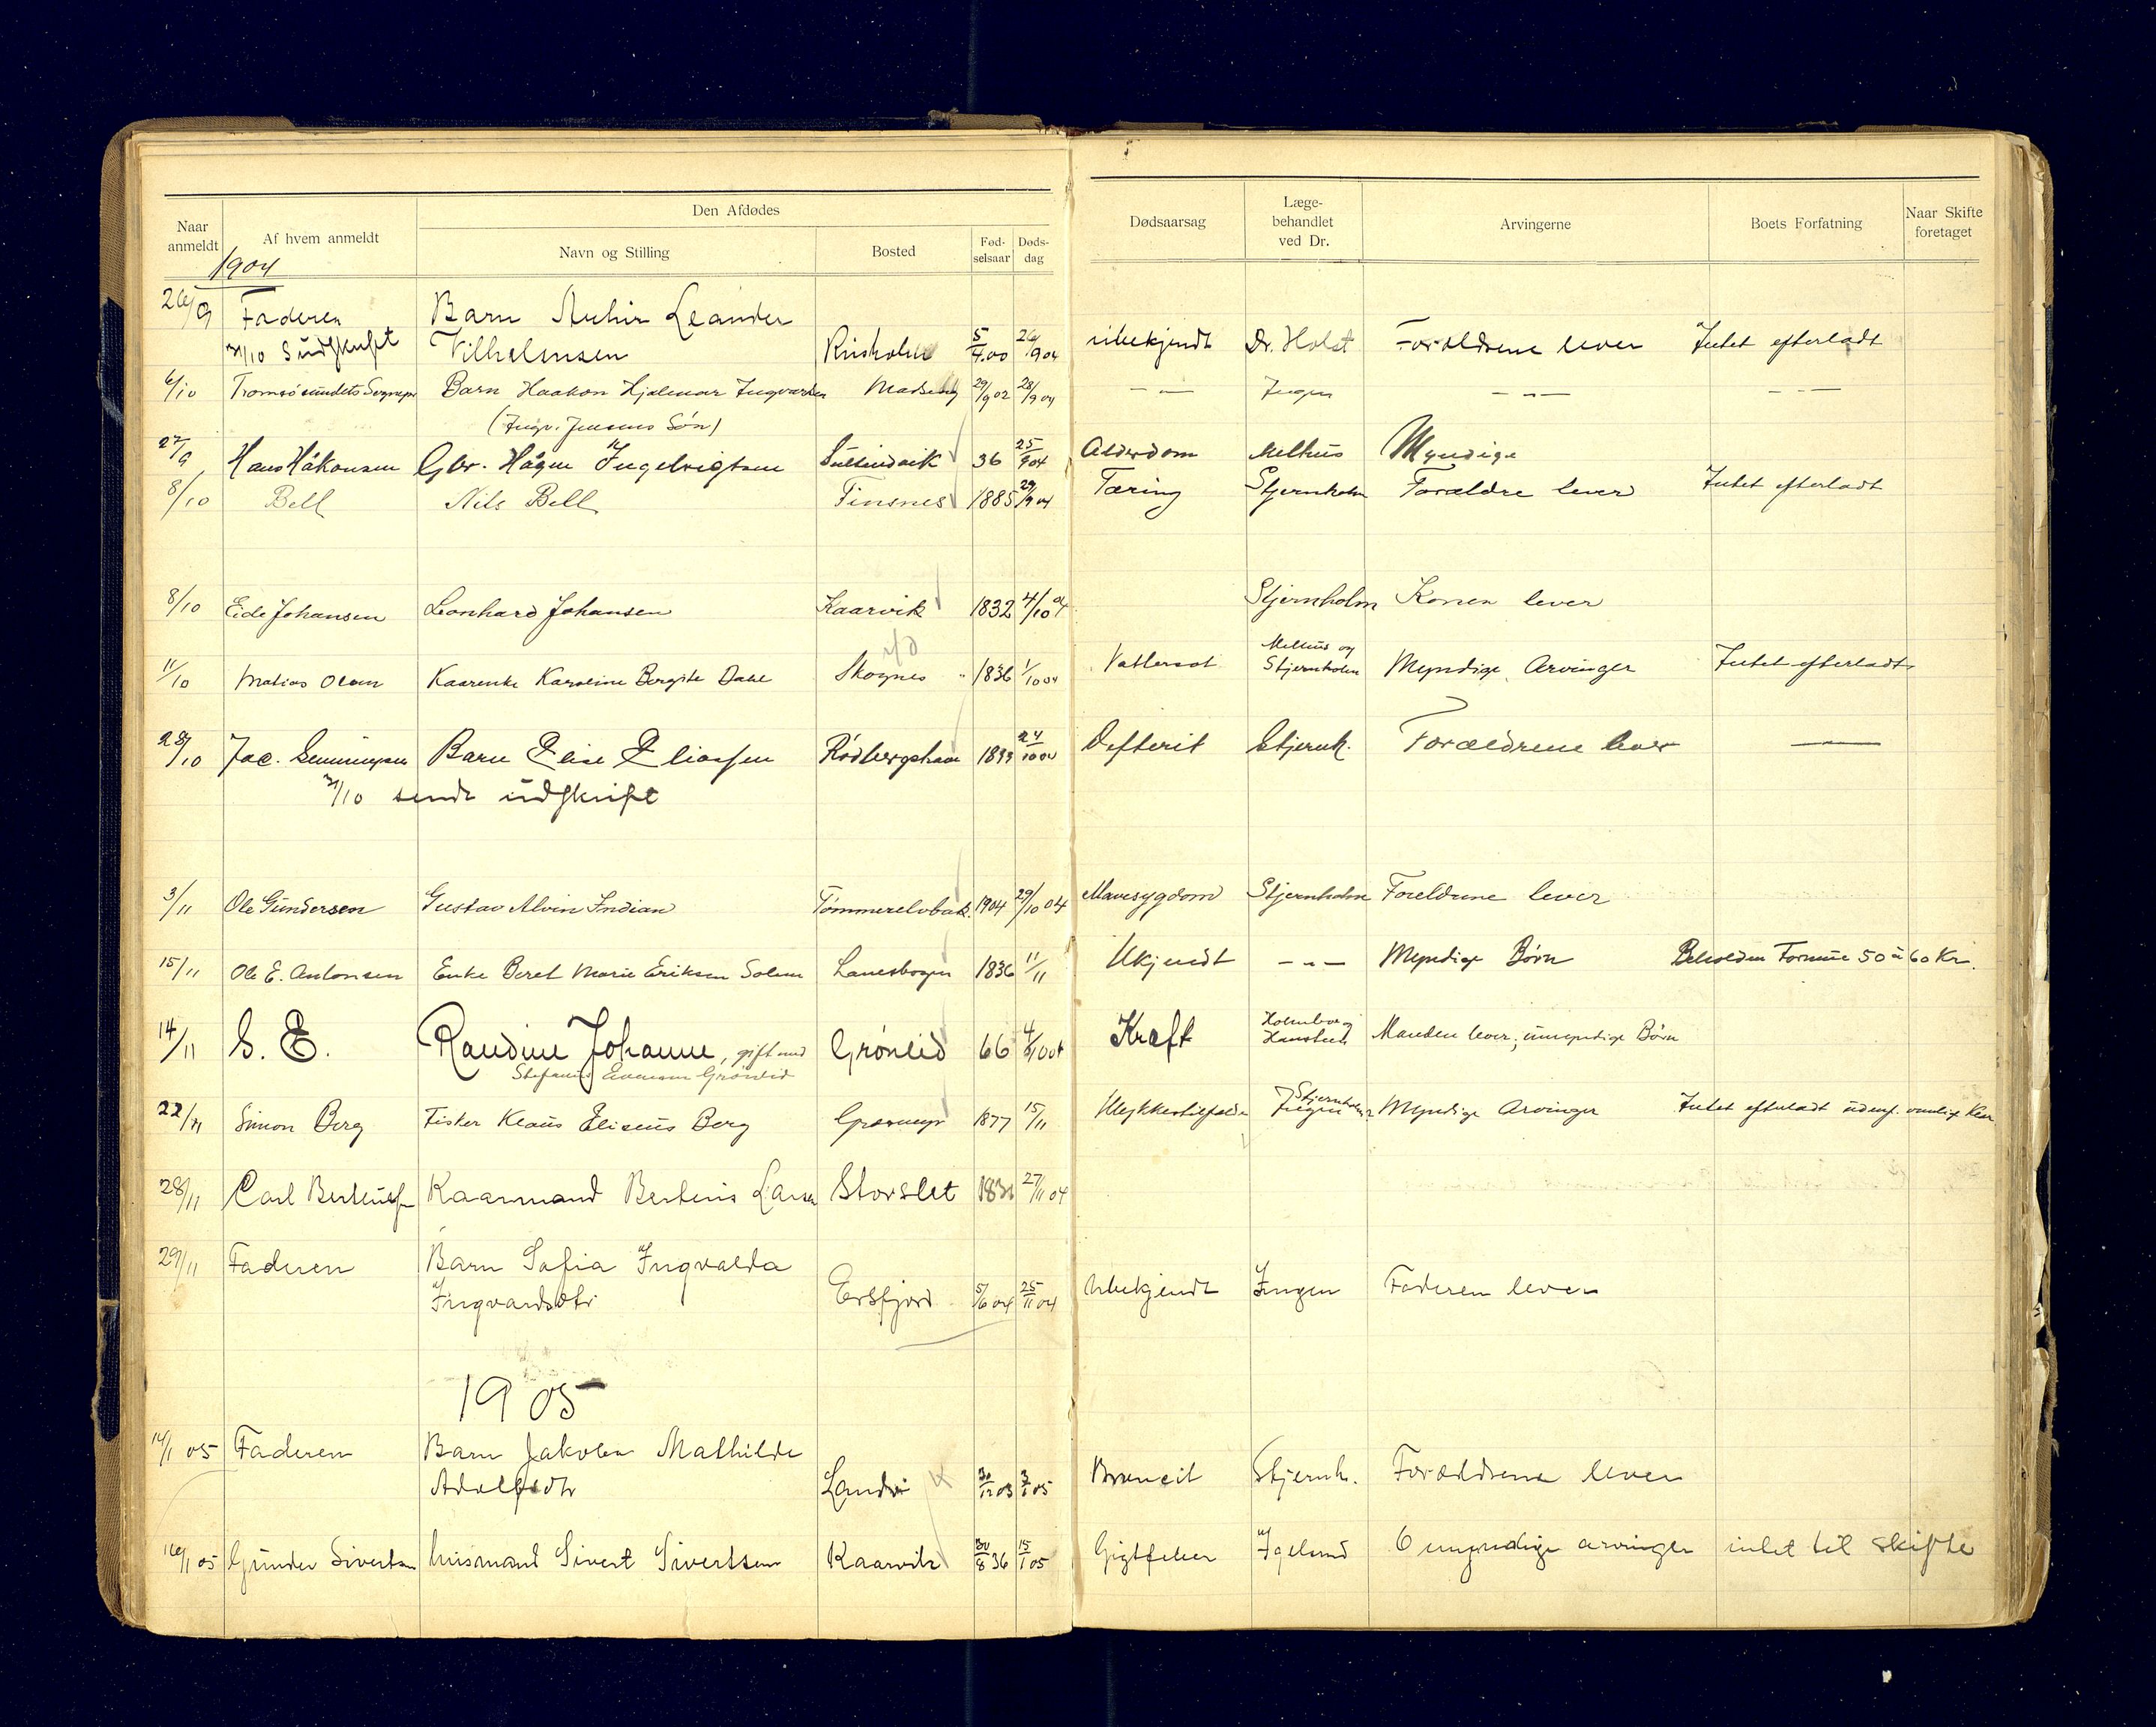 Naar anmeldt | Af hvem anmeldt | Den Afdødes | Dødsaarsag | Læge-behandlet ved Dr. | Arvingerne | Boets Forfatning | Naar Skifte foretaget
Navn og Stilling | Bosted | Fød-selsaar | Døds-dag
1904
26/9 Faderen Barn Leander
31/10 Vilhelmsen 5/4.00 26/9 04 ubekjendt Dr. Holst Forældrene lever Intet efterladt
6/10 Tromsøsundets Barn Haakon Hjalmar Ingvardsen 29/9 02 28/9 04 — " — Ingen — " — — " —
(Ingv. Jensens Søn)
27/9 Hans Håkonsen Gbr. Hågen Ingebrigtsen 36 25/9 04 Alderdom Melhus Myndige
8/10 Bell Nils Bell Finsnes 1885 29/9 04 Tæring Stjernholm Forældre lever Intet efterladt
8/10 Eide Johansen Leonhard Johansen Kaarvik 1832 4/10 04 Stjernholm Konen lever
11/10 Matias Olsen Kaarenke Karoline Bergite Dahl Skognes 1836 1/10 04 Vattersot Melhus og Stjernholm Myndige Arvinger Intet efterladt
28/10 Jac. Barn Elise Eliassen Rødbergshavn 1899 24/10 04 Defterit Stjernh. Forældrene lever —
31/10 sendt udskrift
3/11 Ole Gundersen Gustav Alvin Indian Tømmerelvbak. 1904 29/10 04 Mavesygdom Stjernholm Foreldrene lever
15/11 Ole E. Antonsen Enke Beret Marie Eriksen Solem Lanesbogen 1836 11/11 Ukjendt — " — Myndige Børn Beholden Formue 50 à 60 Kr.
14/11 S. E. Randine Johanne, gift med Grønlid 66 4/11 04 Kræft Holmboe og Hansteen Manden lever; umyndige Børn
Stefanus Evensen Grønlid
22/11 Simon Berg Fisker Klaus Eliseus Berg 1877 15/11 Ulykkestilfælde Stjernholm Ingen Myndige Arvinger Intet efterladt
28/11 Carl Kaarmand Berteus Larsen Storslet 27/11 04
29/11 Faderen Barn Sofia Ingvalda
Ingvardsdtr Ersfjord 5/6 04 25/11 04 Ubekjendt Ingen Faderen lever
1905
14/1 05 Faderen Barn Jakobea Mathilde
Adolfsdtr 30/12 03 3/1 05 Stjernh. Forældrene lever
16/1 05 Gunder Sivertsen husmand Sivert Sivertsen Kaarvik 30/8 36 15/1 05 Gigtfeber Igelsrud 6 myndige arvinger intet til skifte